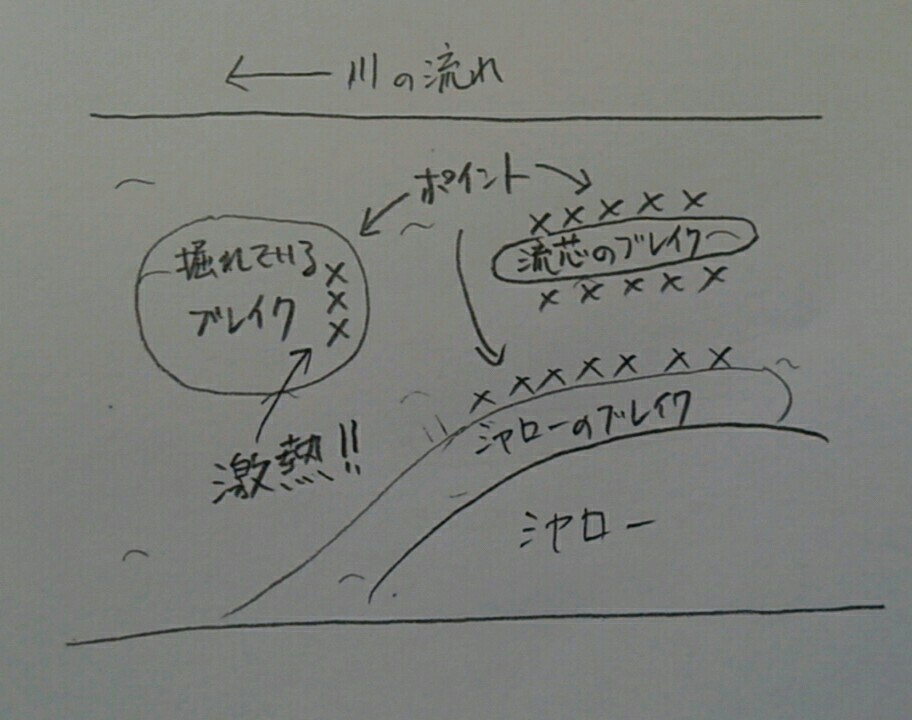 ← 川の流れ
ポイント
××××
流芯のブレイク
×××××
掘れている
ブレイク
×
×
×
×××××××
シャローのブレイク
激熱!!
シャロー